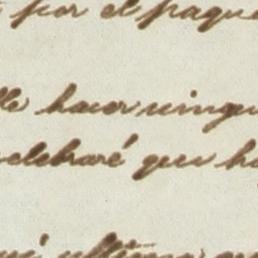 por el paque
hacer ningu
celebraré que ha
última